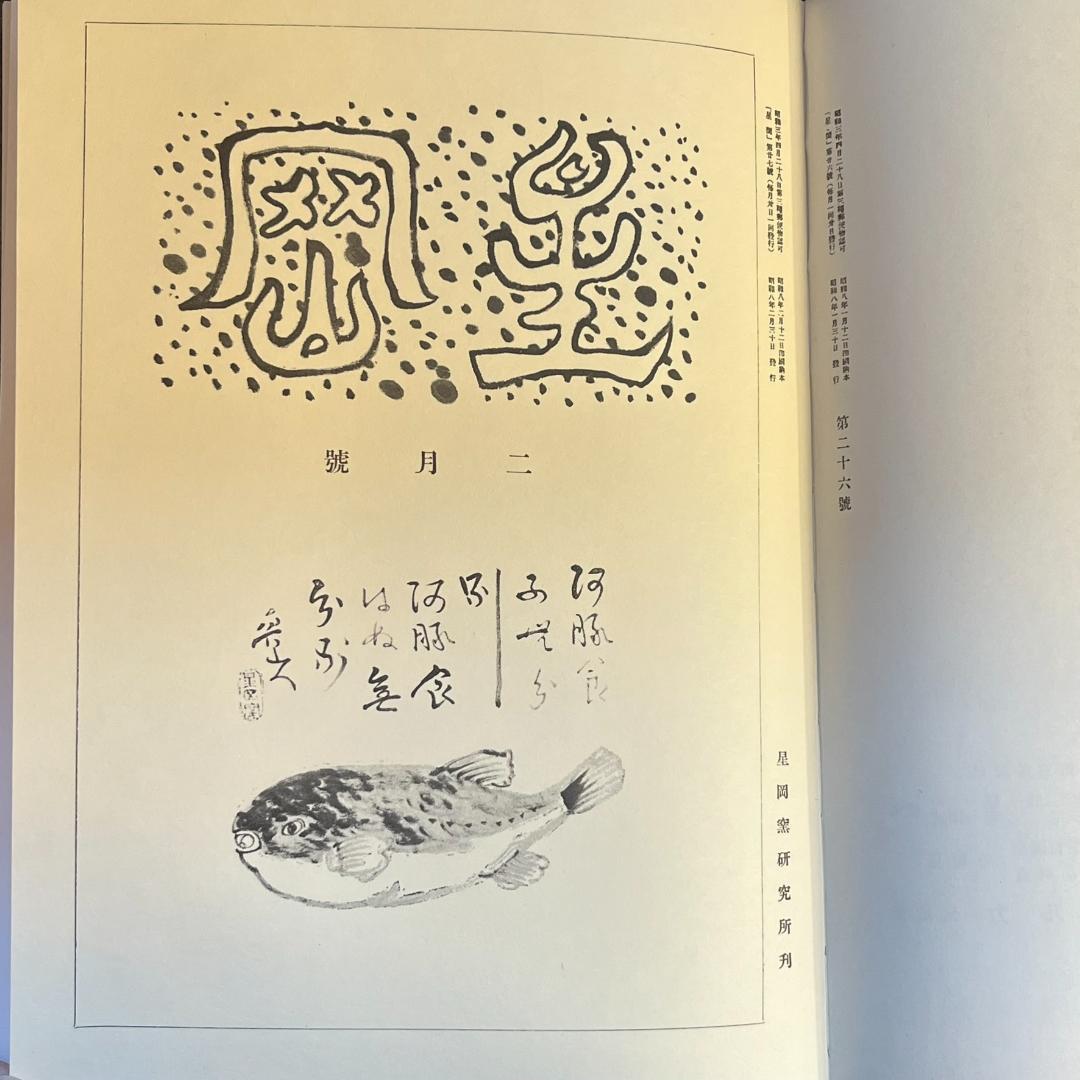 昭和三年四月二十八日第三種郵便物認可
「星・岡」第廿六號(毎月一回卅日發行)
昭和八年一月十二日印刷納本
昭和八年一月三十日 發行
第二十六號
昭和三年四月二十八日第三種郵便物認可
「星岡」第廿七號(毎月卅日一回發行)
昭和八年二月十二日印刷納本
昭和八年二月三十日 發行
星岡窯研究所刊
星岡
二月號
河豚食
ふ無分
別
河豚食
はぬ無
分別
魯山人
星岡窯